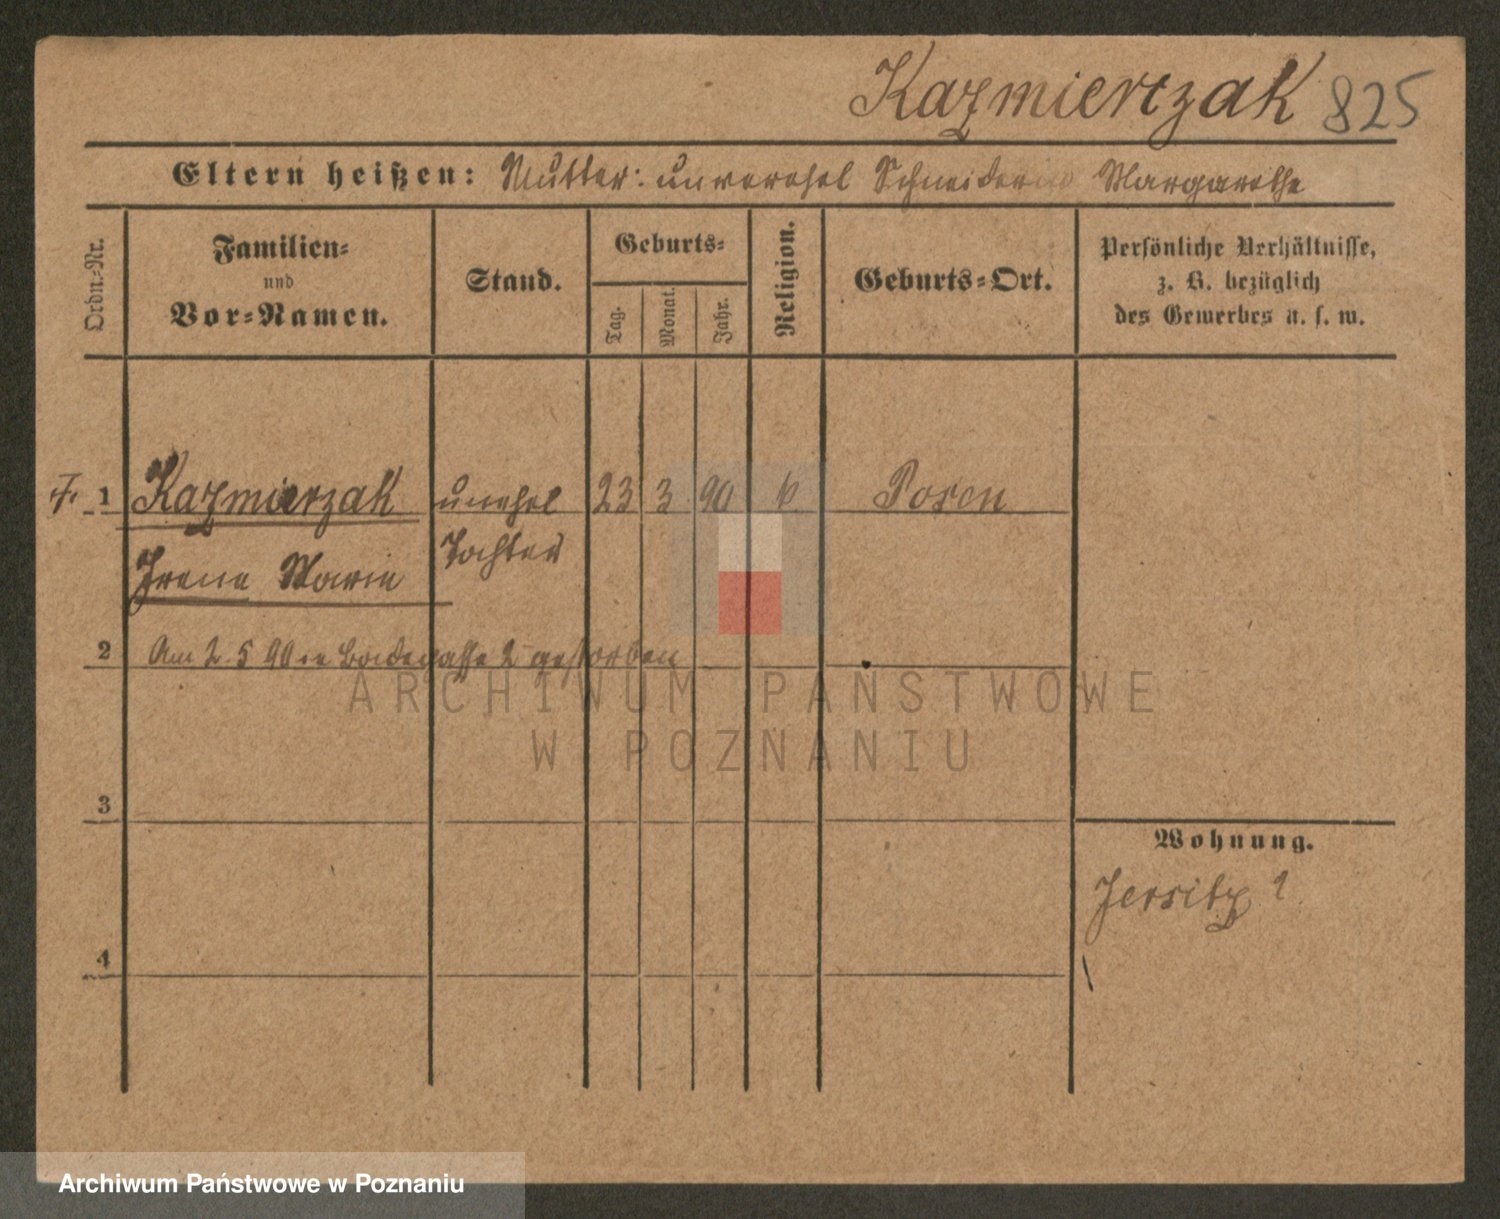 Kaźmierczak 825
Eltern heißen: Mutter: unverehel Schneiderin Margarethe
Ordn.-Nr.
Familien-
und
Vor-Namen.
Stand.
Geburts-
Tag.
Monat.
Jahr.
Religion.
Geburts-Ort.
Persönliche Verhältnisse,
z. B. bezüglich
des Gewerbes u. s. w.
1 Kazmierzak unehel 23 3 90 k Posen
Irene Marie Tochter
2 Am 2.5 90 in Badegasse 2 gestorben
3
Wohnung.
Jersitz
4
ARCHIWUM PAŃSTWOWE
W POZNANIU
Archiwum Państwowe w Poznaniu